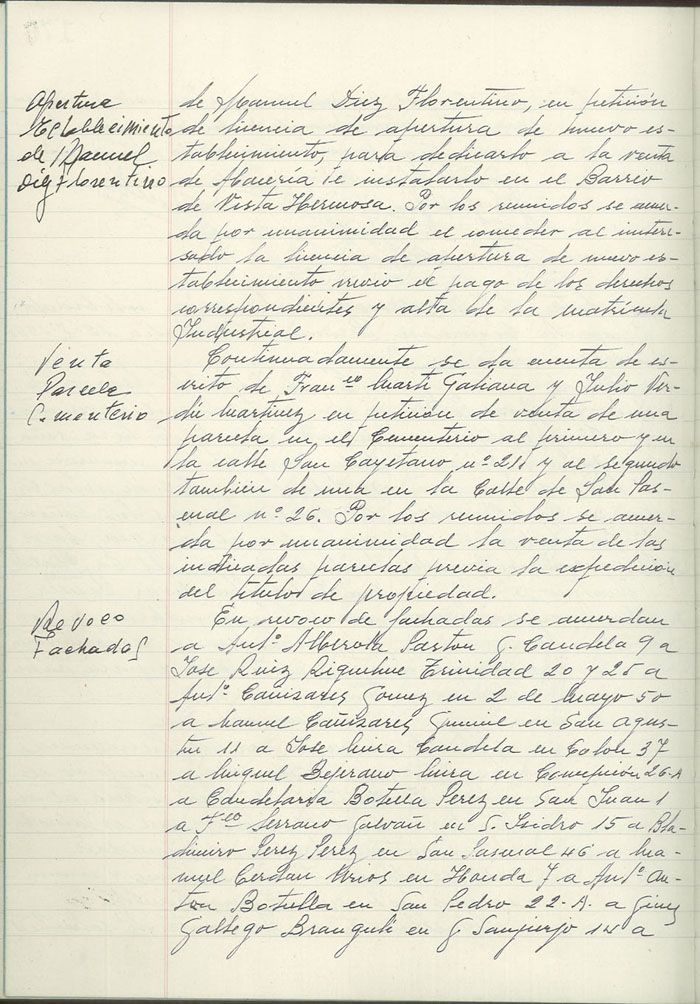 Apertura
Establecimiento
de Manuel
Diez Florentino
de Manuel Diez Florentino, en petición
de licencia de apertura de nuevo es-
tablecimiento, para dedicarlo a la venta
de Abacería e instalarlo en el Barrio
de Vista Hermosa. Por los reunidos se acuer-
da por unanimidad el conceder al intere-
sado la licencia de apertura de nuevo es-
tablecimiento previo el pago de los derechos
correspondientes y alta de la matricula
Industrial.
Venta
Parcela
Cementerio
Continuadamente se da cuenta de es-
crito de Franco Martí Galiana y Julio Ver-
dú Martinez en petición de venta de una
parcela en el Cementerio al primero y en
la calle San Cayetano nº 21 y al segundo
también de una en la Calle de San Pas-
cual nº 26. Por los reunidos se acuer-
da por unanimidad la venta de las
indicadas parcelas previa la expedición
del titulo de propiedad.
Revoco
Fachadas
En revoco de fachadas se acuerdan
a Antº Alberola Pastor G. Candela 9 a
Jose Ruiz Riquelme Trinidad 20 y 25 a
Antº Cañizares Gomez en 2 de Mayo 50
a Manuel Cañizares en San Agus-
tin 11 a Jose Mira Candela en Colon 37
a Miguel Bejerano Mira en Concepción 26-A
a Candelaria Botella Perez en San Juan 1
a Fco Serrano Galvañ en S. Isidro 15 a Bla-
dimiro Perez Perez en San Pascual 46 a Ma-
nuel Cerdan Urios en Honda 7 a Antº An-
ton Botella en San Pedro 22-A. a Gines
Gallego en G Sanjurjo 14 a